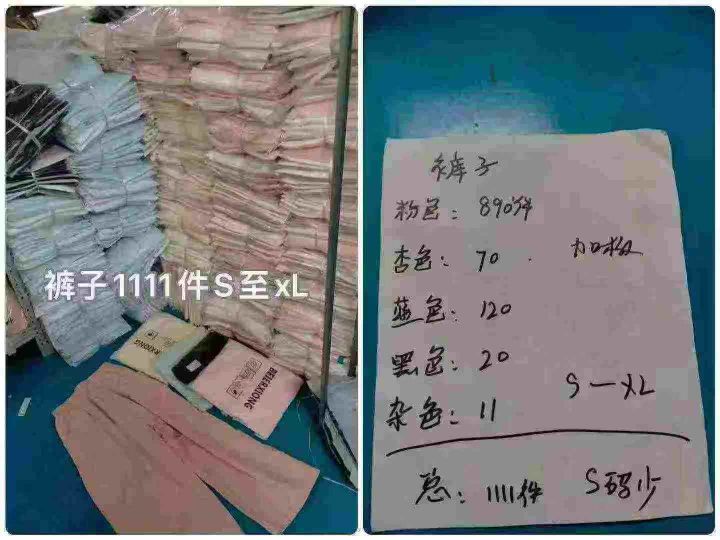 裤子1111件S至xL
BEIERXIONG
裤子
粉色：890件
杏色：70
加极
蓝色：120
黑色：20
S—XL
杂色：11
总：1111件 S码少